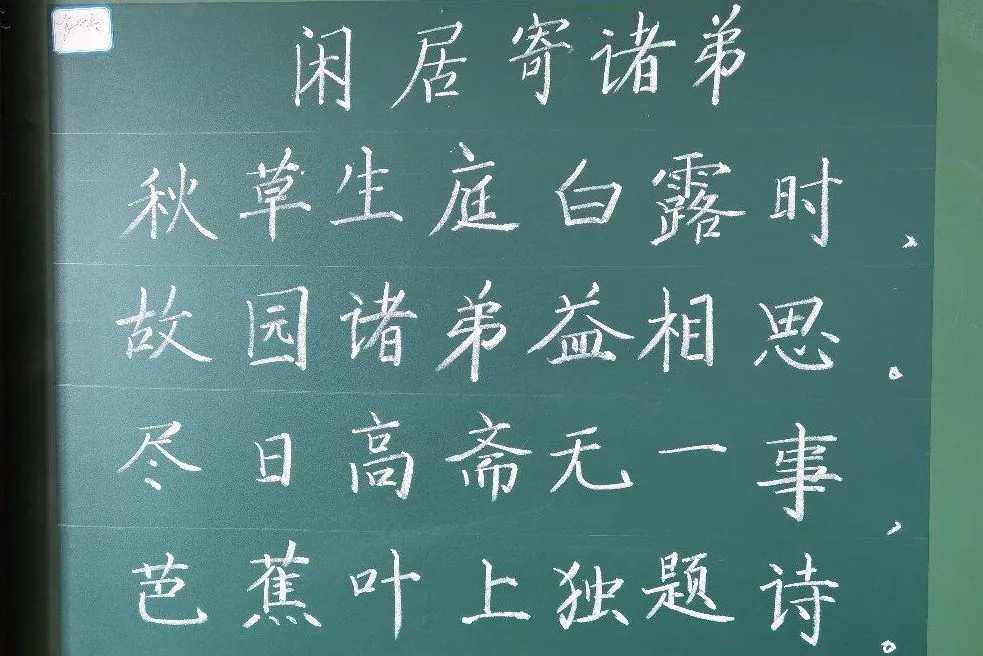 闲居寄诸弟
秋草生庭白露时，
故园诸弟益相思。
尽日高斋无一事，
芭蕉叶上独题诗。